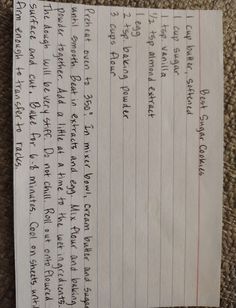 Best Sugar Cookies
1 cup butter, softened
1 cup sugar
1 tsp vanilla
1/2 tsp almond extract
1 egg
2 tsp baking powder
3 cups flour
Preheat oven to 350°. In mixer bowl, cream butter and sugar
until smooth. Beat in extracts and egg. Mix flour and baking
powder together. Add a little at a time to the wet ingredients.
The dough will be very stiff. Do not chill. Roll out onto floured
surface and cut. Bake for 6-8 minutes. Cool on sheets until
firm enough to transfer to racks.